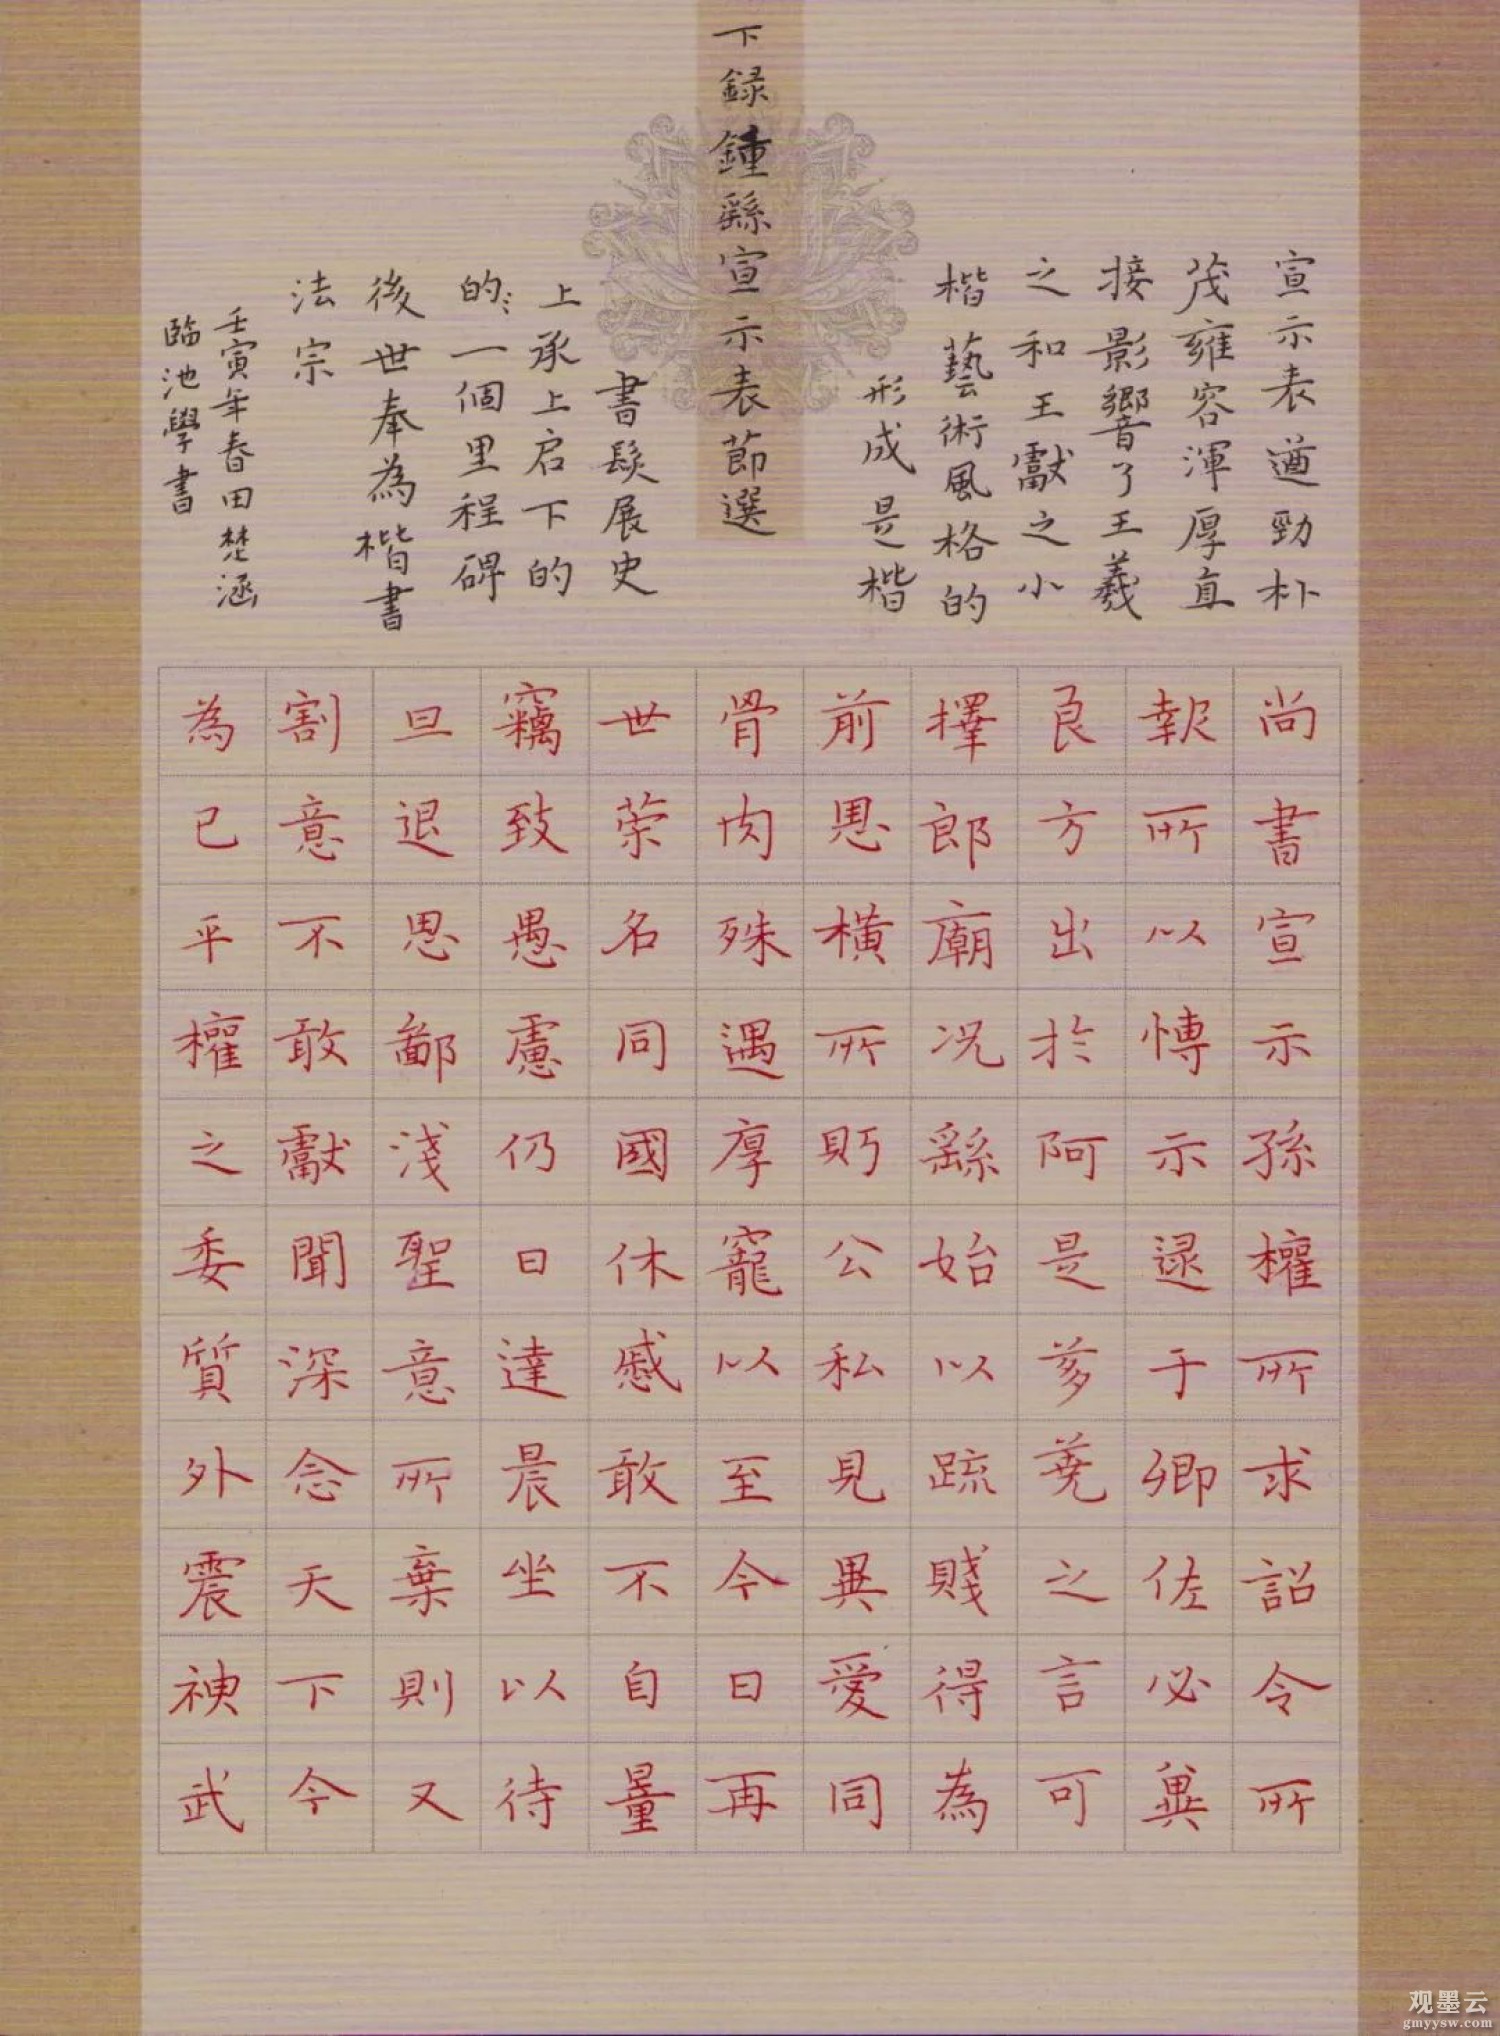 下録鍾繇宣示表節選
宣示表遒勁朴
茂雍容渾厚直
接影響了王羲
之和王獻之小
楷藝術風格的
形成是楷
書髮展史
上承上启下的
的一個里程碑
後世奉為楷書
法宗
壬寅年春田楚涵
臨池學書
尚書宣示孫權所求詔令所
報所以博示逮于卿佐必兾
良方出於阿是芻蕘之言可
擇郎廟况繇始以疏賤得為
前恩橫所盻公私見異愛同
骨肉殊遇厚寵以至今日再
世荣名同國休慼敢不自量
竊致愚慮仍日達晨坐以待
旦退思鄙淺聖意所棄則又
割意不敢獻聞深念天下今
為已平權之委質外震神武
观墨云
gmyysw.com